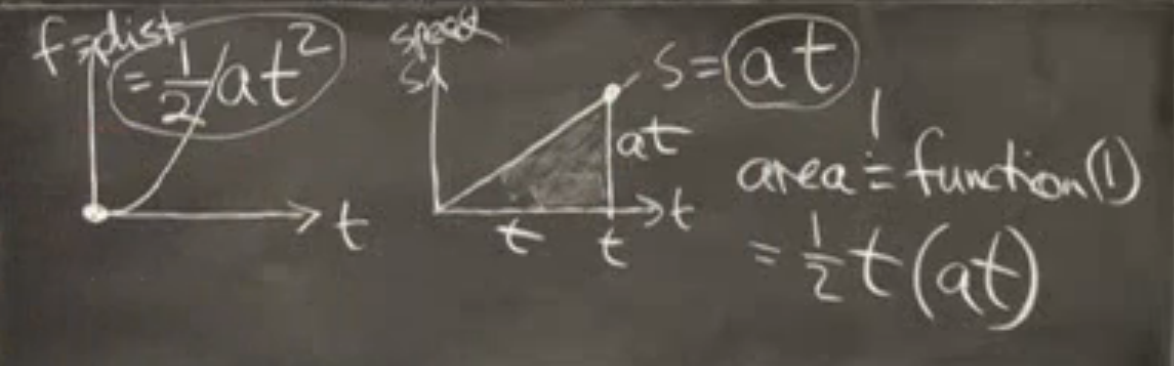 f = dist
= 1/2 at²
t
speed
s
s = at
at
t
t
t
area = function(1)
= 1/2 t(at)